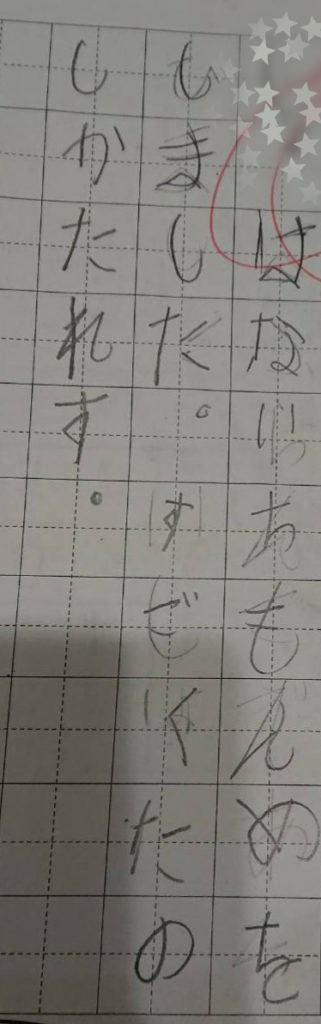 はないあもんめを
しました。すごくたの
しかたれす。